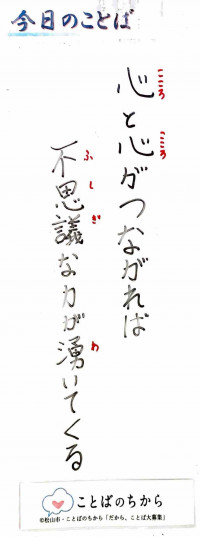 今日のことば
心と心がつながれば
こころ
こころ
不思議な力が湧いてくる
ふしぎ
わ
ことばのちから
©松山市・ことばのちから「だから、ことば大募集」